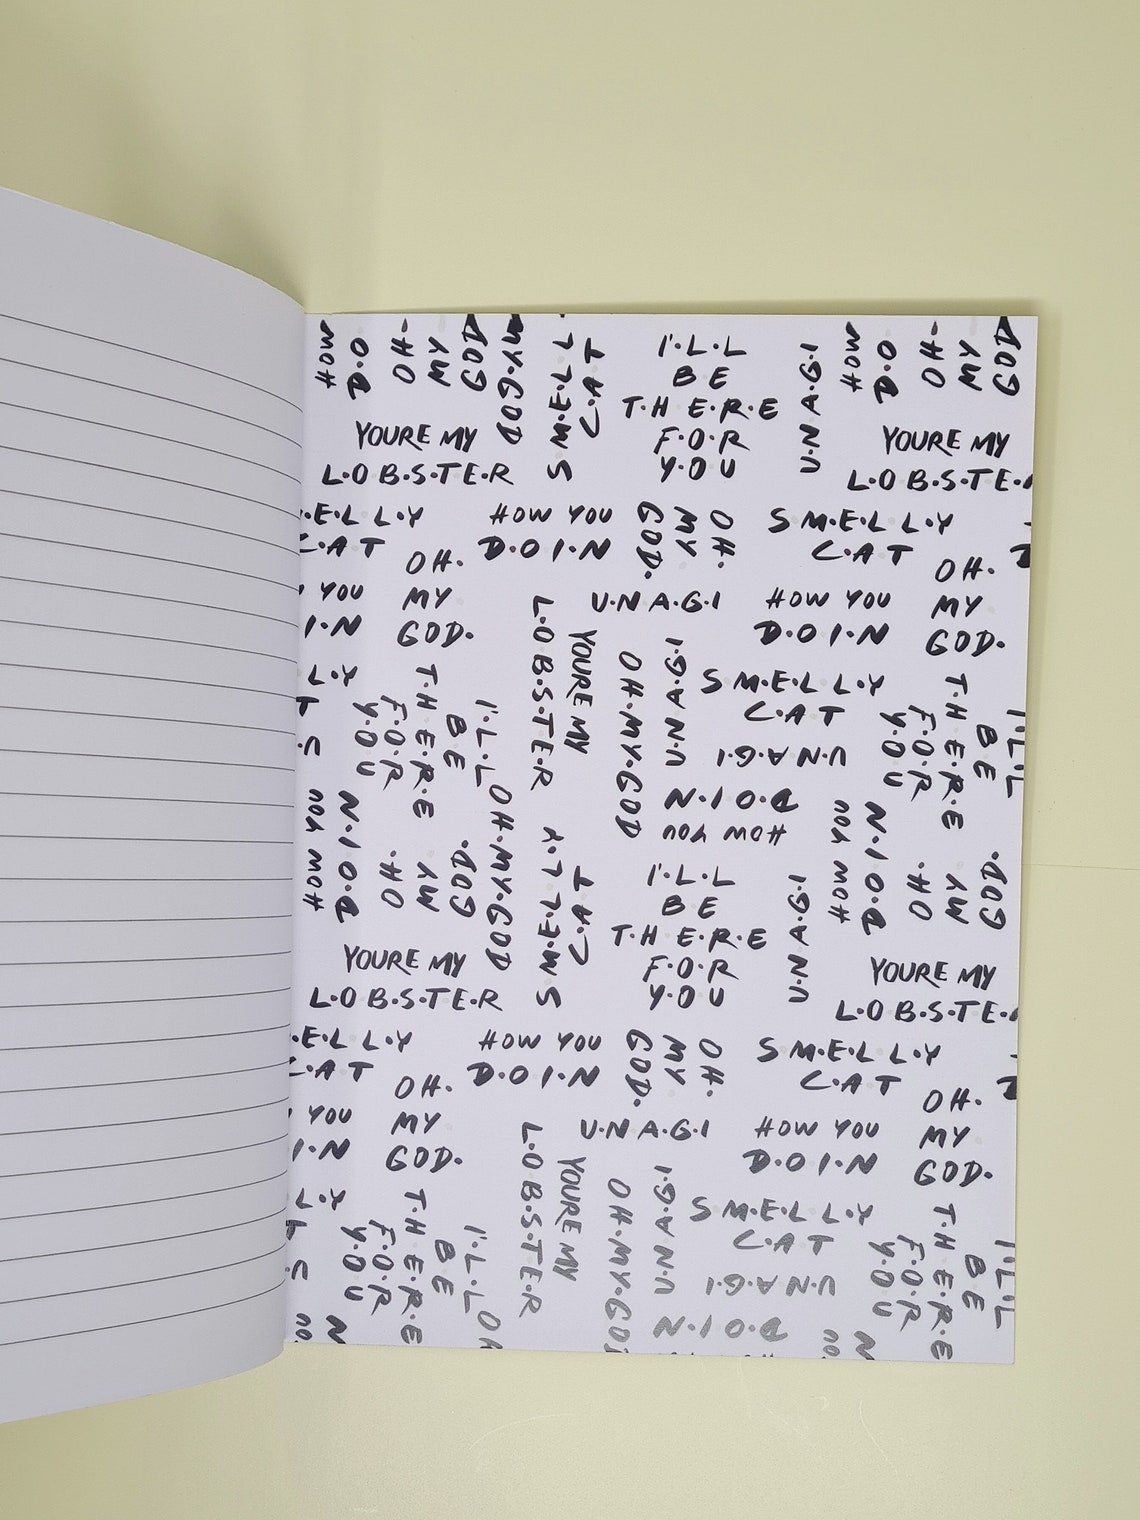 HOW
D.O
OH-
MY
GOD
MY.GOD
S.M.E.L.L
C.A.T
I'.L.L
B.E
T.H.E.R.E
F.O.R
Y.O.U
U.N.A.G.I
HOW
D.O
OH-
MY
GOD
YOURE MY
L.O.B.S.T.E.R
YOURE MY
L.O.B.S.T.E.
.E.L.L.Y
C.A.T
OH.
MY
GOD.
HOW YOU
D.O.I.N
OH.
MY
GOD.
S.M.E.L.L.Y
C.A.T
OH.
MY
GOD.
YOU
I.N
U.N.A.G.I
HOW YOU
D.O.I.N
YOURE MY
L.O.B.S.T.E.R
OH.MY.GOD
U.N.A.G.I
S.M.E.L.L.Y
C.A.T
L.Y
T
U
I'.L.L
B.E
T.H.E.R.E
F.O.R
Y.O.U
U.N.A.G.I
I'.L.L
B.E
T.H.E.R.E
F.O.R
Y.O.U
HOW YOU
D.O.I.N
OH.
MY
GOD.
OH.MY.GOD
HOW YOU
D.O.I.N
HOW YOU
D.O.I.N
OH.
MY
GOD.
S.M.E.L.L.Y
C.A.T
I'.L.L
B.E
T.H.E.R.E
F.O.R
Y.O.U
U.N.A.G.I
YOURE MY
L.O.B.S.T.E.R
YOURE MY
L.O.B.S.T.E.
.E.L.L.Y
C.A.T
OH.
MY
GOD.
HOW YOU
D.O.I.N
OH.
MY
GOD.
S.M.E.L.L.Y
C.A.T
OH.
MY
GOD.
YOU
I.N
U.N.A.G.I
HOW YOU
D.O.I.N
YOURE MY
L.O.B.S.T.E.R
OH.MY.GO
U.N.A.G.I
S.M.E.L.L.Y
C.A.T
L.Y
T
U
I'.L.L
B.E
T.H.E.R.E
F.O.R
Y.O.U
U.N.A.G.I
I'.L.L
B.E
T.H.E.R.E
F.O.R
Y.O.U
D.O.I.N